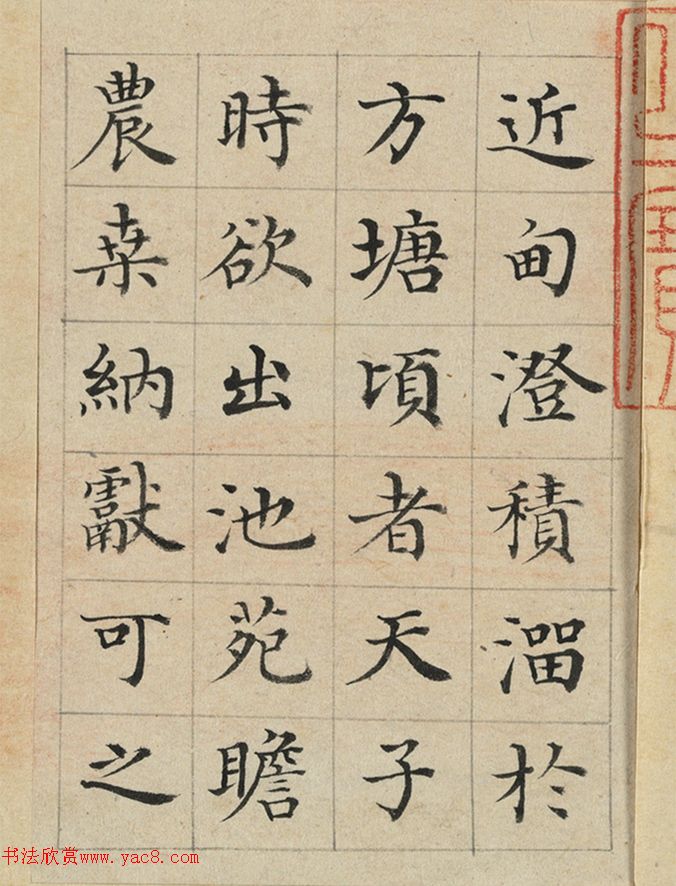 近甸澄積澑於
方塘頃者天子
時欲出池苑瞻
農桒納獻可之
书法欣赏www.yac8.com